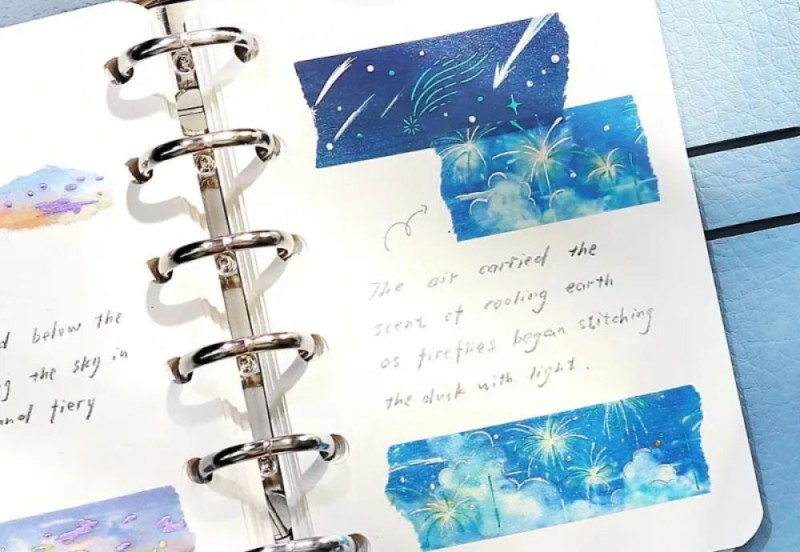 d below the
g the sky in
and fiery
The air carried the
scent of cooling earth
as fireflies began stitching
the dusk with light.